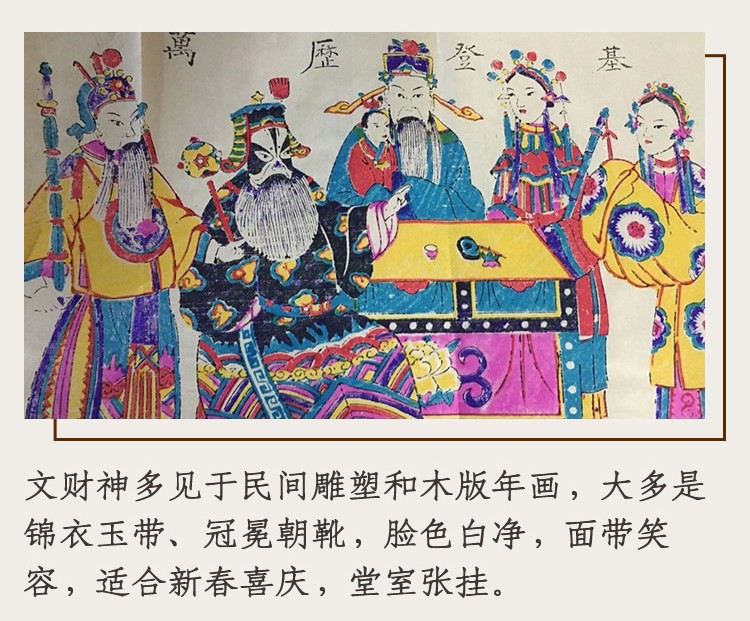 萬歷登基
文财神多见于民间雕塑和木版年画，大多是
锦衣玉带、冠冕朝靴，脸色白净，面带笑
容，适合新春喜庆，堂室张挂。